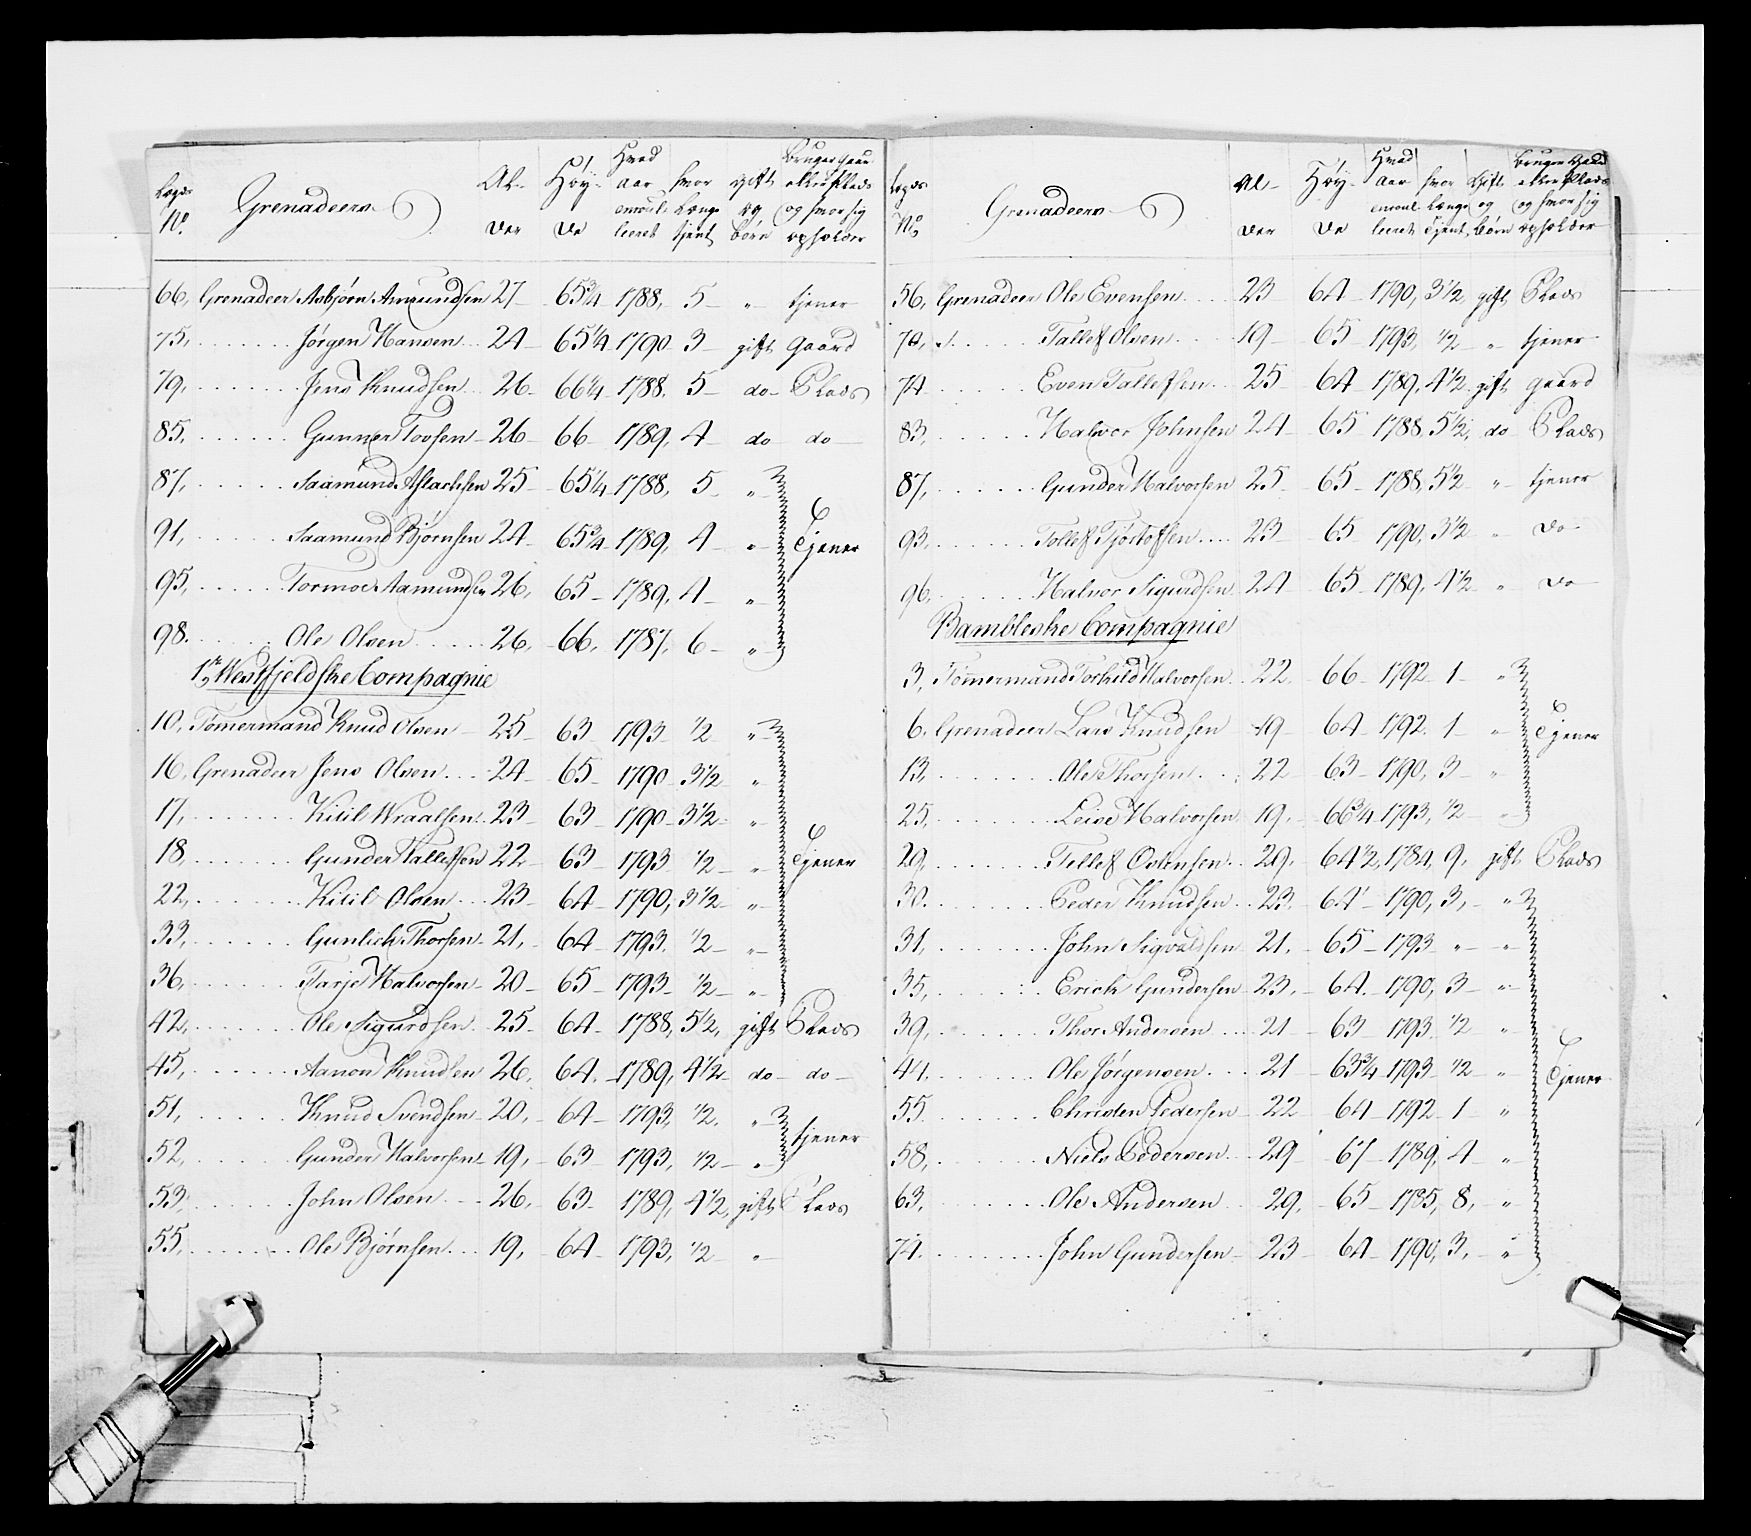 Lægs No. Grenadeern Al- der Höy- de Hvad aar enroul- leeret hvor længe tjent gift og börn bruger gaar eller Plads og hvor sig opholder
66, Grenadeer Asbjørn Amundsen 27 - 65 3/4 1788, 5 - " tjener
75, Jørgen Hansen 24 - 65 1/4 1790 3 - gift gaard
79, Jens Knudsen 26 - 66 1/4 - 1788, 5 - do - Plads
85, Gunner Tovsen - 26 - 66 - 1789, 4 - do - do -
87, Saamund Aslachsen 25 - 65 1/4 - 1788, 5 - "
91, Saamund Bjørnsen 24 - 65 3/4 - 1789, 4 - " Tjener
95, Tormod Aamundsen 26, 65 - 1789, 4 - "
98. Ole Olsen 26, 66, 1787, 6 - "
1te Westfjeldske Compagnie
10, Tømermand Knud Olsen - 25 - 63 1793 - 1/2 "
16, Grenadeer Jens Olsen 24 - 65 - 1790 - 3 1/2 "
17, Kitil Wraalsen 23 - 63 - 1790 - 3 1/2 - "
18, Gunder Tallefsen 22 - 63 - 1793 1/2 - " Tjener
22, Kitil Olsen 23 - 64 - 1790, 3 1/2 - "
33, Gunlich Thorsen - 21, - 64 - 1793. 1/2 - "
36, Tarje Halvorsen - 20 - 65 - 1793 - 1/2 - "
42, Ole Sigurdsen 25 - 64 - 1788, 5 1/2, gift Plads
45, Aanon Knudsen 26, 64, - 1789, 4 1/2 - do - do -
51, Knud Svendsen - 20, - 64 - 1793, 1/2, "
52, Gunder Halvorsen - 19, - 63 - 1793, 1/2 - " tjener
53, John Olsen 26, 63 - 1789, 4 1/2, gift Plads
55, Ole Bjørnsen 19, - 64 - 1793, 1/2 - "
Lægs No. Grenadeern Al- der Höy- de Hvad aar enroul- leeret hvor længe tjent gift og börn bruger Gaard eller Plads og hvor sig opholder
56, Grenadeer Ole Evensen 23 64 - 1790, 3 1/2, gift, Plads
70, Tallef Olsen 19 - 65 - 1793, 1/2 - " tjener
74 Even Tallefsen 25 - 64 - 1789, 4 1/2 gift gaard
83, Halvor Johnsen 24 - 65 - 1788, 5 1/2, do Plads
87, Gunder Halvorsen 25 - 65 - 1788, 5 1/2 - " tjener
93, Tollef Tjøstofsen 23 - 65 1790, 3 1/2 " Do -
96, Halvor Sigurdsen 24 - 65 - 1789, 4 1/2 - " Do -
Bambleske Compagnie
3, Tømmermand Torkild Halvorsen 22, 66 - 1792 - 1 - "
6, Grenadeer Lars Knudsen 19 - 64 - 1792. 1 - " Tjener
13, Ole Thorsen 22 - 63 - 1790, 3 - "
25, Leive Halvorsen 19, - 66 3/4 1793, 1/2 - "
29, Tellef Ostensen 29, - 64 1/2, 1784, 9, gift Plads
30. Peder Knudsen 23 - 64 - 1790, 3, - "
31, John Sigvalsen 21, - 65 - 1793 - " - "
35, Erich Gundersen - 23, - 64. - 1790, 3 - "
39, Thor Andersen 21 - 63 1793 1/2 "
44. Ole Jørgensen 21 - 63 3/4 1793 - 1/2 - " Tjener
55 Christen Pedersen - 22 64 - 1792 - 1 - "
58, Niels Pedersen 29 - 67 - 1789, 4 - "
63, Ole Andersen 29, - 65 - 1785, 8, - "
74. John Gundersen - 23 - 64 - 1790, 3, - "